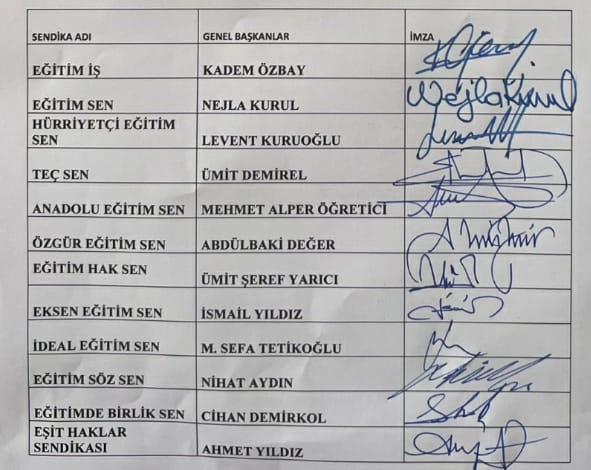 SENDİKA ADI GENEL BAŞKANLAR İMZA
EĞİTİM İŞ KADEM ÖZBAY
EĞİTİM SEN NEJLA KURUL Nejla Kurul
HÜRRİYETÇİ EĞİTİM
SEN LEVENT KURUOĞLU
TEÇ SEN ÜMİT DEMİREL
ANADOLU EĞİTİM SEN MEHMET ALPER ÖĞRETİCİ
ÖZGÜR EĞİTİM SEN ABDÜLBAKİ DEĞER
EĞİTİM HAK SEN ÜMİT ŞEREF YARICI
EKSEN EĞİTİM SEN İSMAİL YILDIZ
İDEAL EĞİTİM SEN M. SEFA TETİKOĞLU
EĞİTİM SÖZ SEN NİHAT AYDIN
EĞİTİMDE BİRLİK SEN CİHAN DEMİRKOL
EŞİT HAKLAR
SENDİKASI AHMET YILDIZ